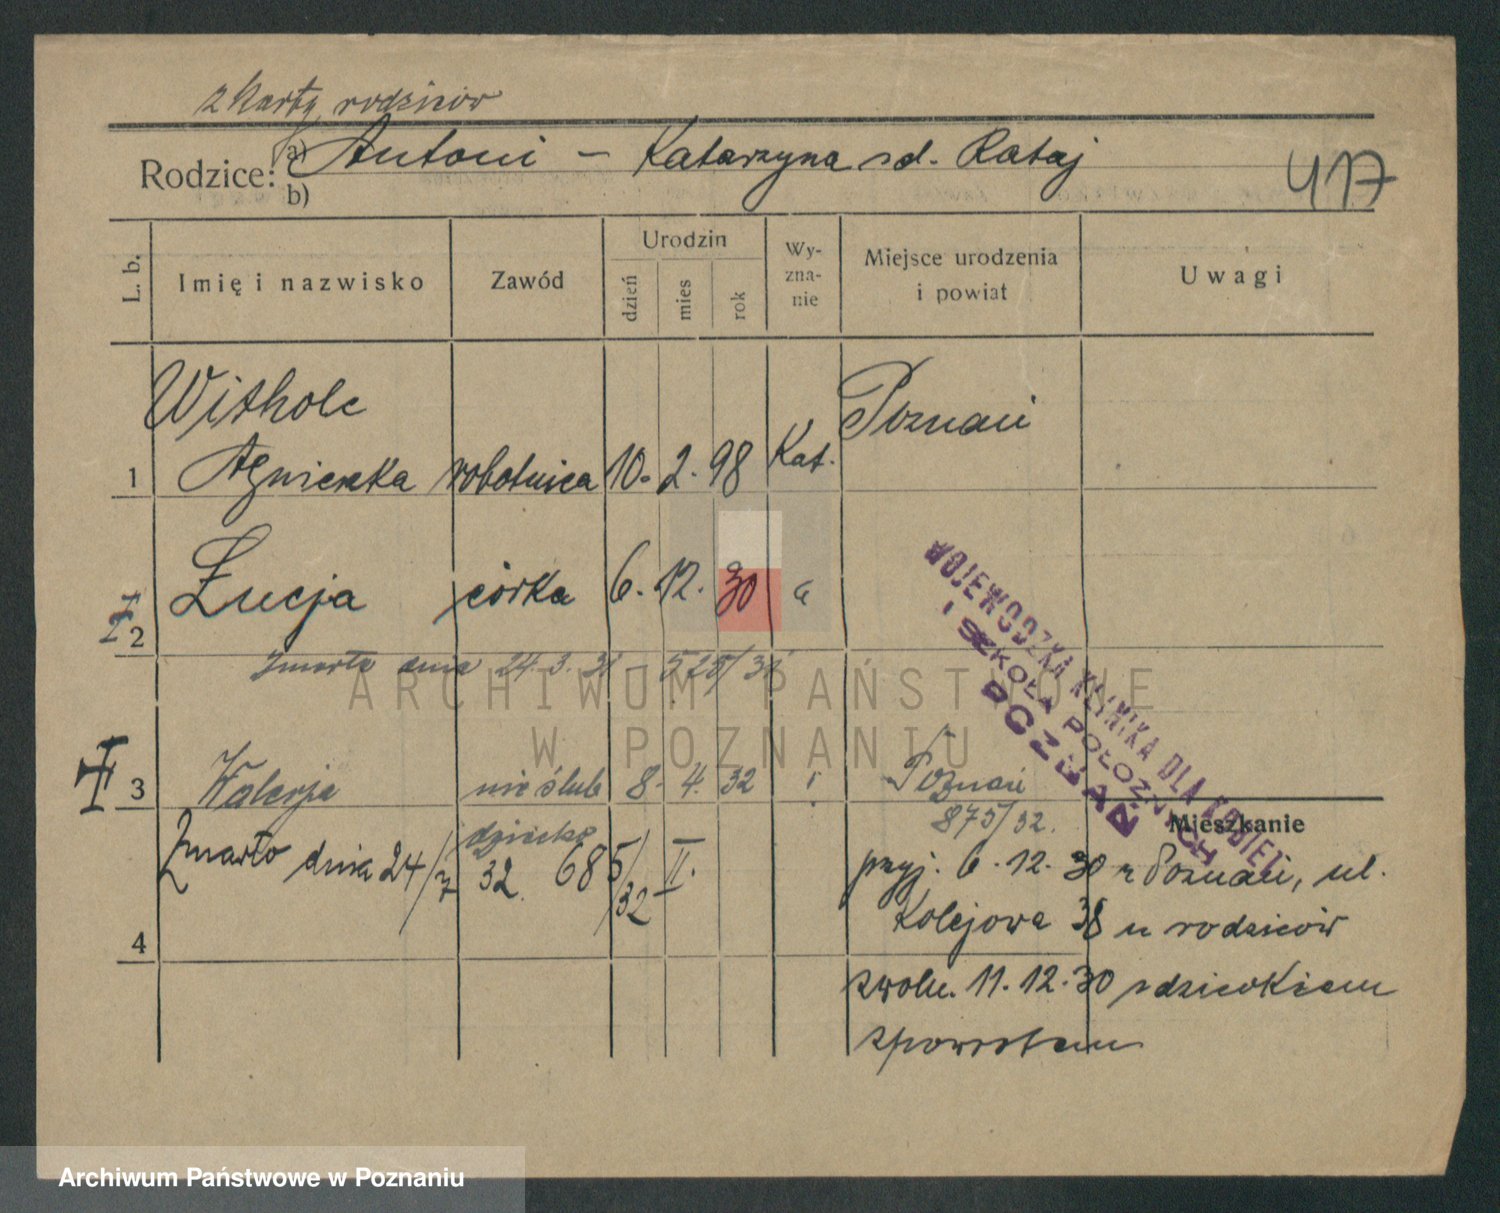 z karty rodziców
Rodzice: a) Antoni – Katarzyna zd. Rataj
b)
417
L. b.
Imię i nazwisko
Zawód
Urodzin
dzień
mies
rok
Wy-
zna-
nie
Miejsce urodzenia
i powiat
Uwagi
Witholc
Poznań
1 Agnieszka robotnica 10. 2. 98 Kat.
2 Łucja córka 6. 12. 30
zmarła dnia 24.3.31 – 525/31
WOJEWÓDZKA KLINIKA DLA KOBIET
I SZKOŁA POŁOŻNYCH
POZNAŃ
ARCHIWUM PAŃSTWOWE
W POZNANIU
3 Walerja nieślub 8. 4. 32 Poznań
dziecko
875/32.
Zmarło dnia 24/7 32. 685/32 II.
4
Mieszkanie
przyj. 6. 12. 30 z Poznań, ul.
Kolejowa 38 u rodziców
zwoln. 11. 12. 30 z dzieckiem
zpowrotem
Archiwum Państwowe w Poznaniu